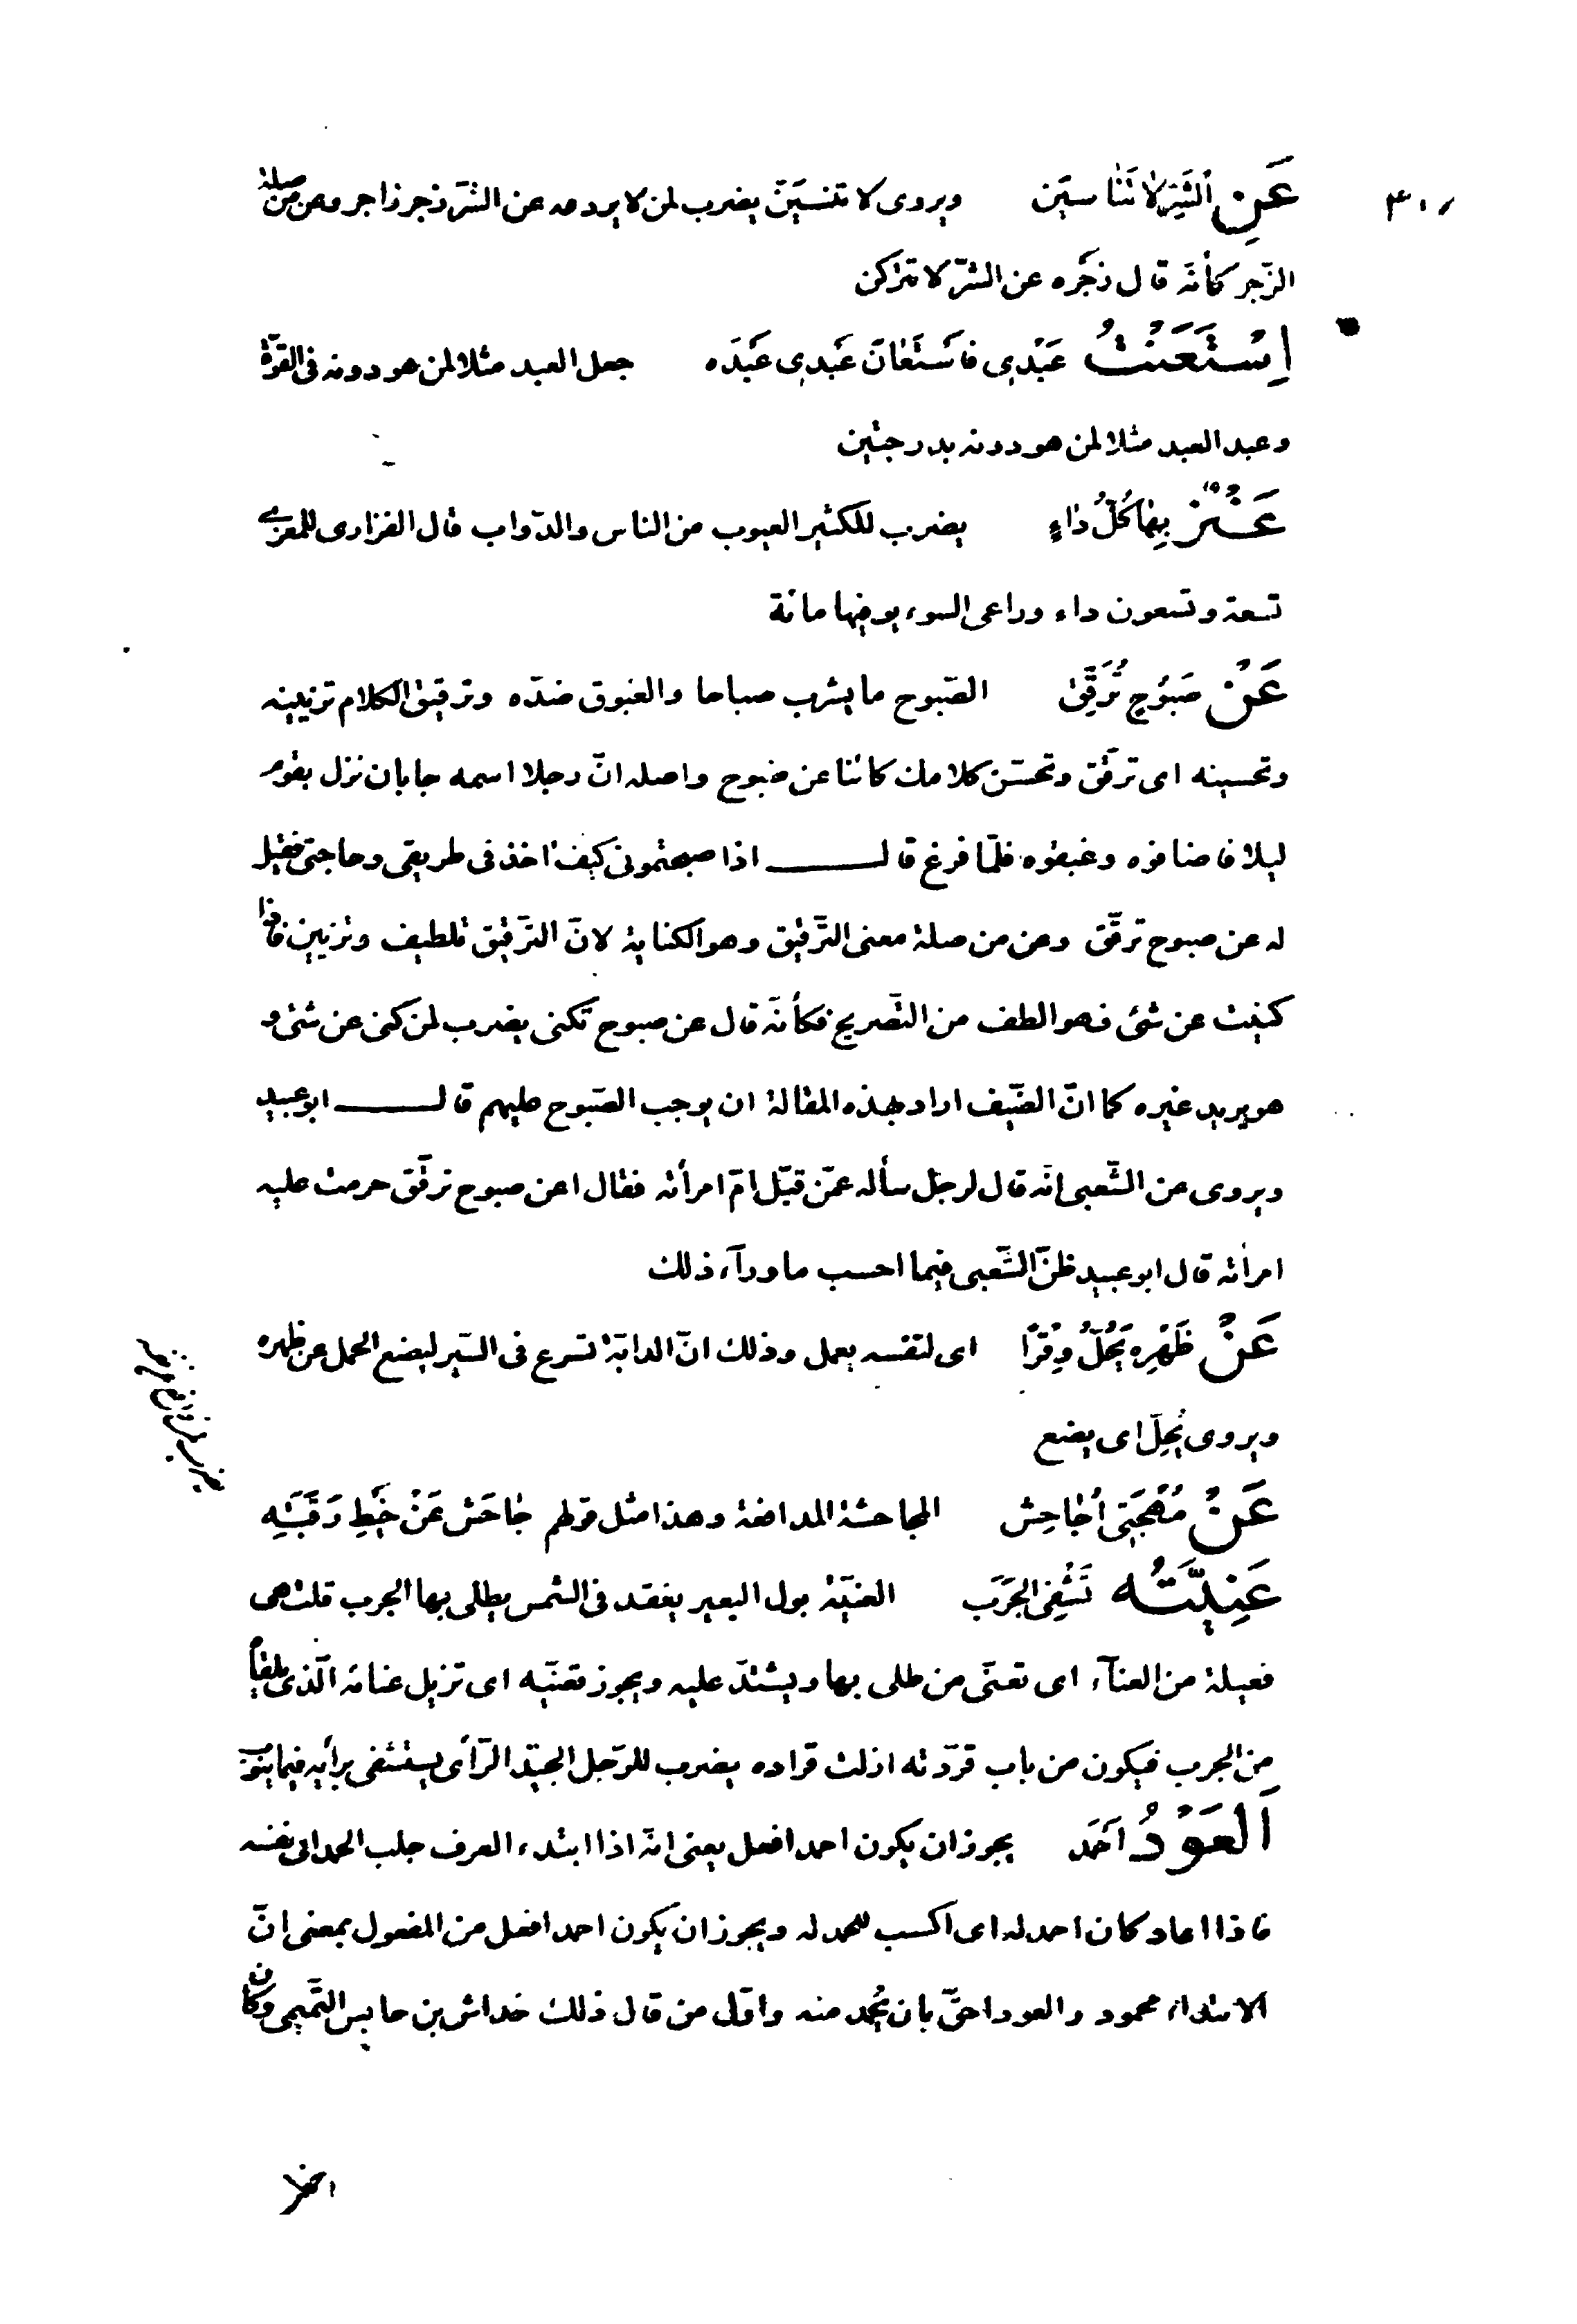 ٣٠١
عَنِ الشَّرِّ لَا تَنَاسَيَنّ ويروى لا تنسَيَنّ يضرب لمن لا يردعه عن الشرّ زجر زاجر وعن من صلة
الزّجر كأنّه قال زجره عن الشرّ لا تتركن
اِسْتَعَنْتُ عَبْدِى فَاسْتَعَانَ عَبْدِى عَبْدَه جعل العبد مثلا لمن هو دونه فى القوّة
وعبد العبد مثلا لمن هو دونه بدرجتين
عَنْزٌ بِهَا كُلُّ دَاءٍ يضرب للكثير العيوب من الناس والدّواب قال الفزارى للمعزى
تسعة وتسعون داء وراعى السوء يوفيها مائة
عَنْ صَبُوحٍ تُرَقِّقُ الصّبوح ما يشرب صباحا والغبوق ضدّه وترقيق الكلام تزيينه
وتحسينه اى ترقّق وتحسّن كلامك كائنا عن صبوح واصله انّ رجلا اسمه جابان نزل بقوم
ليلا فاضافوه وغبقوه فلمّا فرغ قال اذا صبحتمونى كيف اخذ فى طريقى وحاجتى فقيل
له عن صبوح ترقّق وعن من صلة معنى التّرقيق وهو الكناية لانّ التّرقيق تلطيف وتزيين فاذا
كنيت عن شئ فهو الطف من التّصريح فكأنّه قال عن صبوح تكنى يضرب لمن كنى عن شئ و
هو يريد غيره كما انّ الضّيف اراد بهذه المقالة ان يوجب الصّبوح عليهم قال ابو عبيد
ويروى عن الشّعبى انّه قال لرجل سأله عمّن قبّل امّ امرأته فقال اعن صبوح ترقّق حرمت عليه
امرأته قال ابو عبيد ظنّ الشّعبى فيما احسب ما ورآء ذلك
عَنْ ظَهْرِهِ يَحُلُّ وِقْرًا اى لنفسه يعمل وذلك انّ الدابّة تسرع فى السّير ليضع الحمل عن ظهره
ويروى يُحِلّ اى يضع
عَنْ مُهْجَتِى أُجَاحِشُ المجاحشة المدافعة وهذا مثل قولهم جَاحَشَ عَنْ خَيْطِ رَقَبَتِهِ
عَنِيَّتُه تَشْفِى الجَرَبَ العنيّة بول البعير يعقد فى الشمس يطلى بها الجرب قلت هى
فعيلة من العنآء اى تعنّى من طلى بها ويشتدّ عليه ويجوز تعنّيه اى تزيل عنائه الّذى يلقاه
من الجرب فيكون من باب قرّدته ازلت قراده يضرب للرّجل الجيّد الرّأى يستشفى برأيه فيما ينوب
اَلْعَوْدُ اَحْمَد يجوز ان يكون احمد افعل يعنى انّه اذا ابتدء العرف جلب الحمد الى نفسه
فاذا اعاد كان احمد له اى اكسب للحمد له ويجوز ان يكون احمد افعل من المفعول بمعنى انّ
الابتداء محمود والعود احقّ بان يُحمد منه واوّل من قال ذلك خداش بن حابس التّميمى وكان